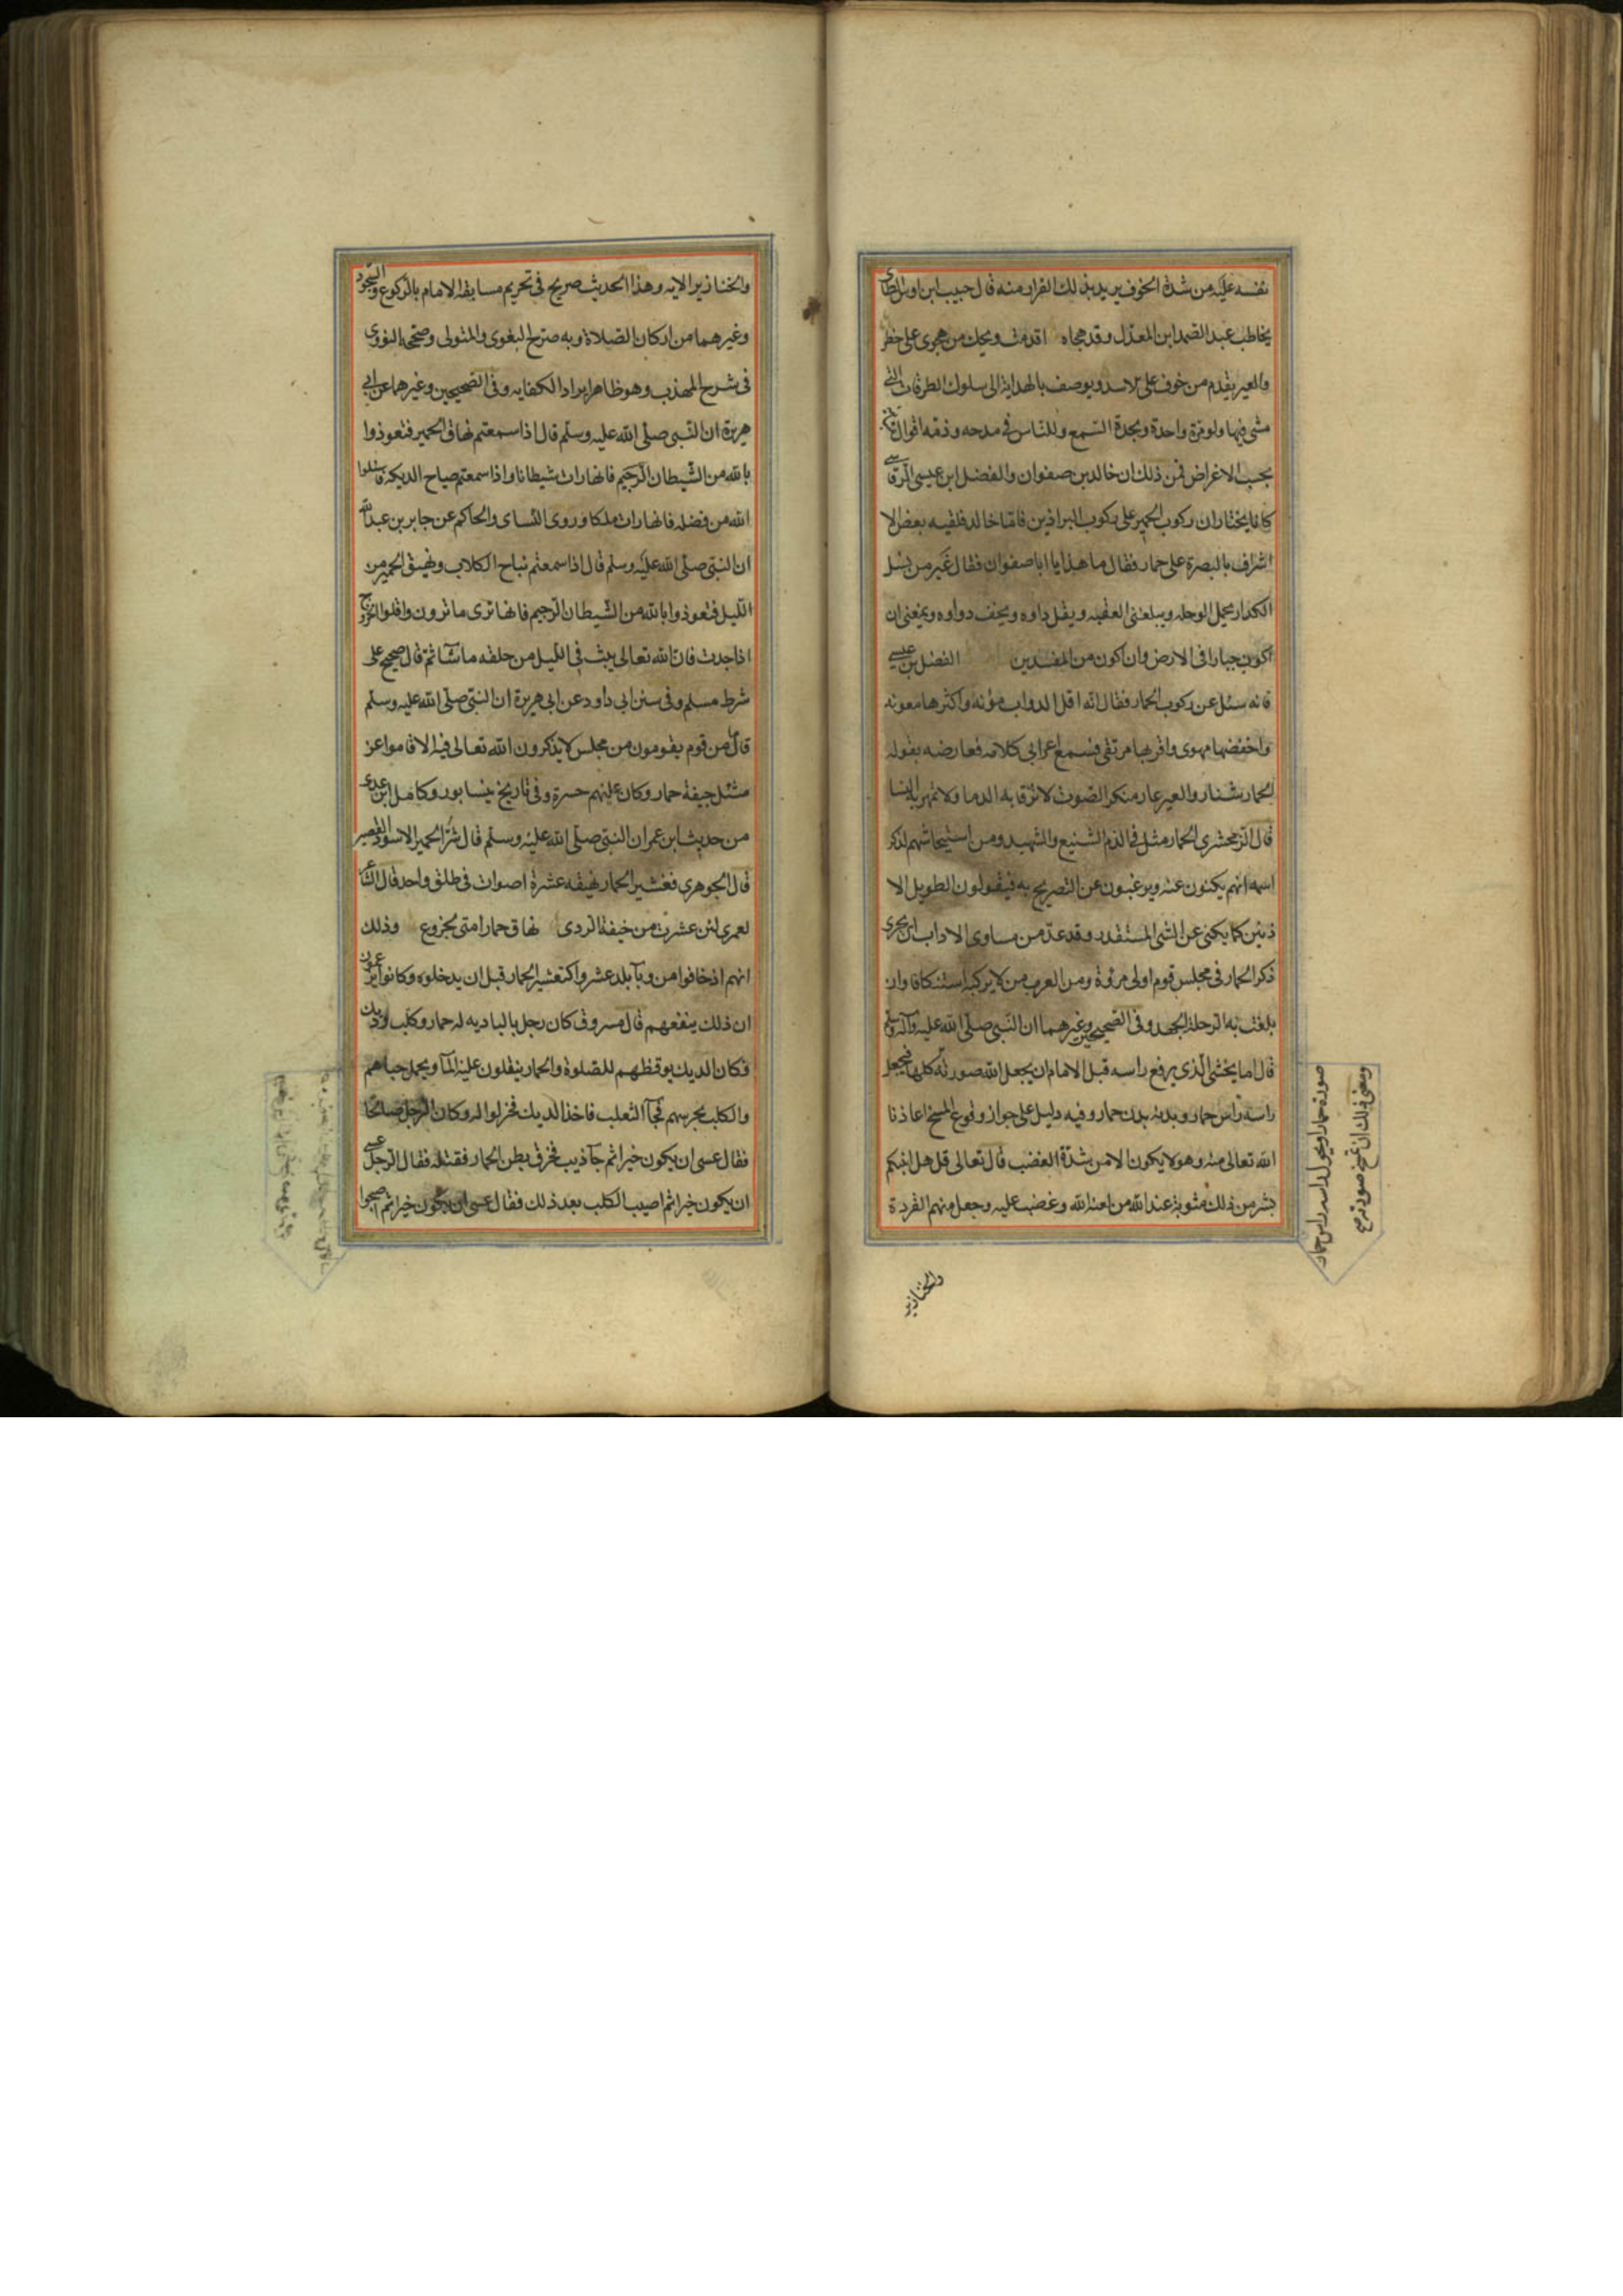 نفسه عليه من شدة الخوف يريد بذلك الفرار منه قال حبيب ابن اوس الطائى
يخاطب عبد الصمد ابن المعذل وقد هجاه اقدمت ويحك من هجوى على خطر
والعير يقدم من خوف على الاسد ويوصف بالهداية الى سلوك الطرقات التى
مشى فيها ولو مرة واحدة وبحدة السمع وللناس فى مدحه وذمه اقوال
بحسب الاغراض فمن ذلك ان خالد بن صفوان والفضل ابن عيسى الرقاشى
كانا يختاران ركوب الحمير على ركوب البراذين فاما خالد فلقيه بعض الا
اشراف بالبصرة على حمار فقال ما هذا يا ابا صفوان فقال عير من نسل
الكداد يحمل الرحله ويبلغنى العقبه ويقل داوه ويخف دواوه ويمنعنى ان
اكون جبارا فى الارض وان اكون من المفسدين الفضل بن عيسى
فانه سئل عن ركوب الحمار فقال انه اقل الدواب مؤنه واكثرها معونه
واخفضها مهوى واقربها مرتقى فسمع اعرابى كلامه فعارضه بقوله
الحمار شنار والعير عار منكر الصوت لا ترقا به الدما ولا تمهر به النسا
قال الزمخشرى الحمار مثل فى الذم الشنيع والشهيد ومن استيحاشهم لذكر
اسمه انهم يكنون عنه ويرغبون عن التصريح به فيقولون الطويل الا
ذنين كما يكنى عن الشى المستقذر وقد عد من مساوى الاداب ان يجرى
ذكر الحمار فى مجلس قوم اولى مروة ومن العرب من لا يركبه استنكافا وان
بلغت به الرحلة الجهد وفى الصحيحين وغيرهما ان النبى صلى الله عليه وآله وسلم
قال اما يخشى الذى يرفع راسه قبل الامام ان يجعل الله صورته كلها فيجعل
راسه راس حمار وبدنه بدن حمار وفيه دليل على جواز وقوع المسخ اعاذنا
الله تعالى منه وهو لا يكون الا من شدة الغضب قال تعالى قل هل انبئكم
بشر من ذلك مثوبة عند الله من لعنه الله وغضب عليه وجعل منهم القردة
صورة حمار او يحول راسه راس حمار
ومعنى ذلك ان
والخنازير
والخنازير الايه وهذا الحديث صريح فى تحريم مسابقة الامام بالركوع والسجود
وغيرهما من اركان الصلاة وبه صرح البغوى والمتولى وصححه النووى
فى شرح المهذب وهو ظاهر ايراد الكفايه وفى الصحيحين وغيرهما عن ابى
هريرة ان النبى صلى الله عليه وسلم قال اذا سمعتم نهاق الحمير فتعوذوا
بالله من الشيطان الرجيم فانها رات شيطانا واذا سمعتم صياح الديكه فاسئلوا
الله من فضله فانها رات ملكا وروى النساى والحاكم عن جابر بن عبد الله
ان النبى صلى الله عليه وسلم قال اذا سمعتم نباح الكلاب ونهيق الحمير من
الليل فتعوذوا بالله من الشيطان الرجيم فانها ترى ما ترون واقلوا الخروج
اذا جدت فان الله تعالى يبث فى الليل من خلقه ما شآ ثم قال صحيح على
شرط مسلم وفى سنن ابى داود عن ابى هريرة ان النبى صلى الله عليه وسلم
قال من قوم يقومون من مجلس لا يذكرون الله تعالى فيه الا قاموا عن
مثل جيفة حمار وكان عليهم حسرة وفى تاريخ نيسابور وكامل ابن عدى
من حديث ابن عمر ان النبى صلى الله عليه وسلم قال شر الحمير الاسود القصير
قال الجوهرى فعشير الحمار نهيقه عشرة اصوات فى طلق واحد قال الشاعر
لعمرى لئن عشرت من خيفة الردى نهاق حمار امتى بجزوع وذلك
انهم اذ خافوا من وبآ بلد عشروا كتعشير الحمار قبل ان يدخلوه وكانوا يزعمون
ان ذلك ينفعهم قال مسروق كان رجل بالباديه له حمار وكلب وديك
فكان الديك يوقظهم للصلوة والحمار ينقلون عليه المآ ويحمل خباهم
والكلب يحرسهم فجآ الثعلب فاخذ الديك فحزنوا له وكان الرجل صالحا
فقال عسى ان يكون خيرا ثم جآ ذيب فخرق بطن الحمار فقتله فقال الرجل عسى
ان يكون خيرا ثم اصيب الكلب بعد ذلك فقال عسى ان يكون خيرا ثم اصبحوا